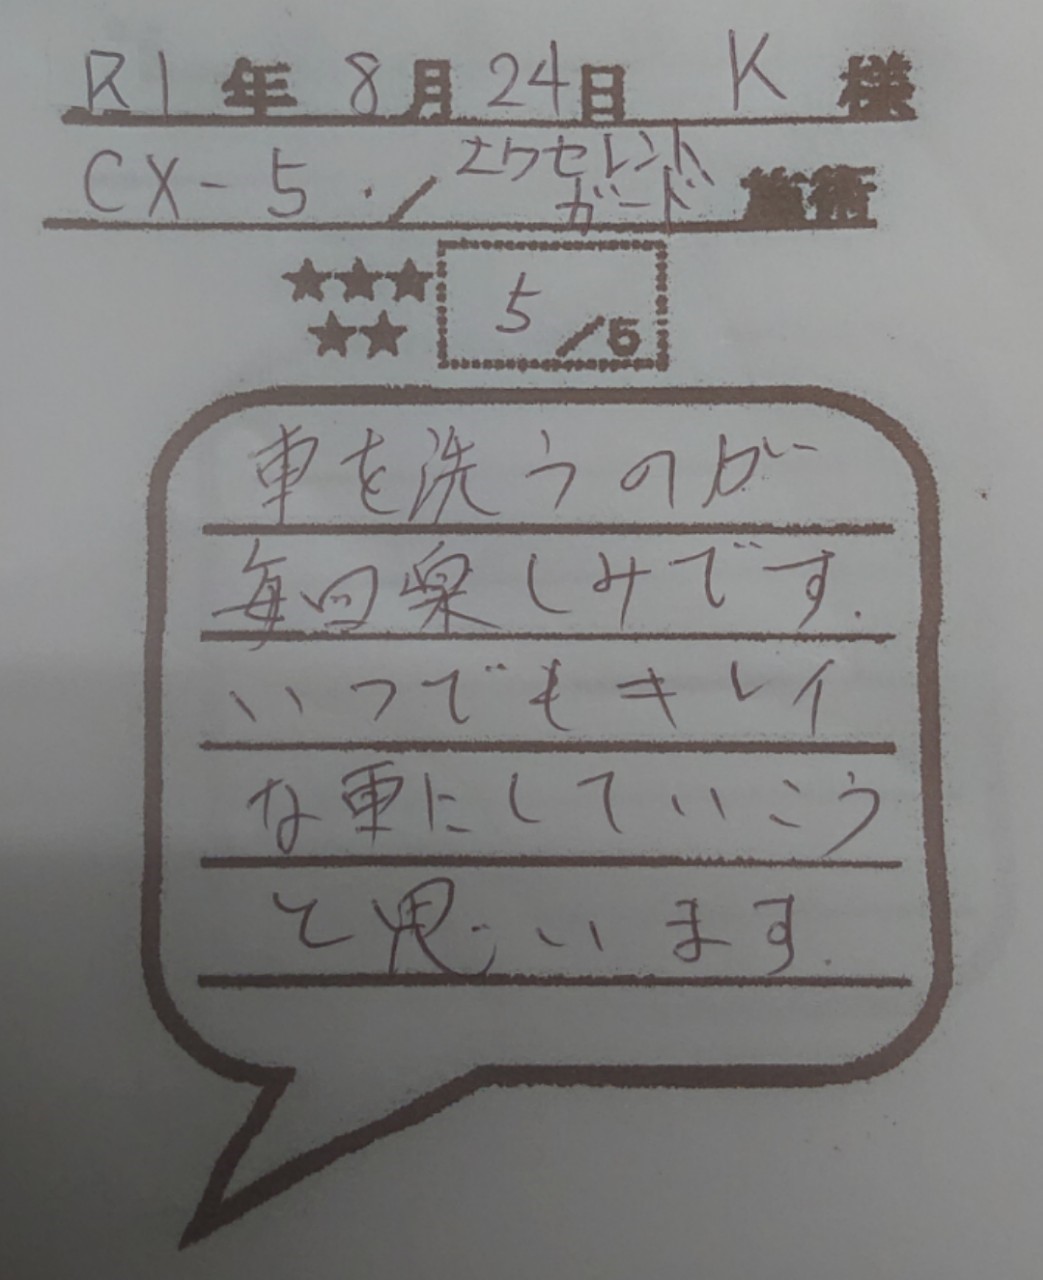 R1年 8月 24日 K 様
CX-5 ／ エクセレント
ガード 施術
★★★
★★
5／5
車を洗うのが
毎回楽しみです.
いつでもキレイ
な車にしていこう
と思います.